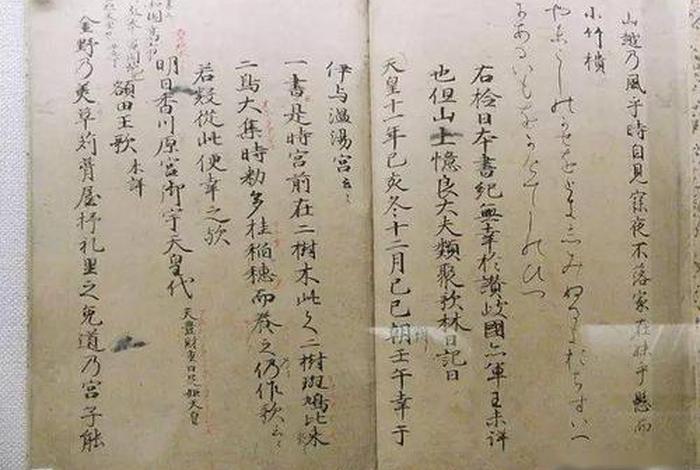 山越乃風乎時自見寐夜不落家在妹乎懸而
小竹樻
やまこしのかせをときしみぬるよおちすいへ
にあるいもをかけてしのひつ
右捡日本書紀無幸於讃岐國亦軍王未詳
也但山上憶良大夫類聚歌林曰記曰
天皇十一年己亥冬十二月己巳朔壬午幸于
伊与温湯宮云〻
一書是時宮前在二樹木此之二樹斑鳩比米
二鳥大集時勅多挂稲穂而養之仍作歌云〻
若疑從此便幸之歟
明日香川原宮御宇天皇代 天豊財重日足姫天皇
額田王歌 未詳
金野乃美草苅葺屋杼礼里之兎道乃宮子能